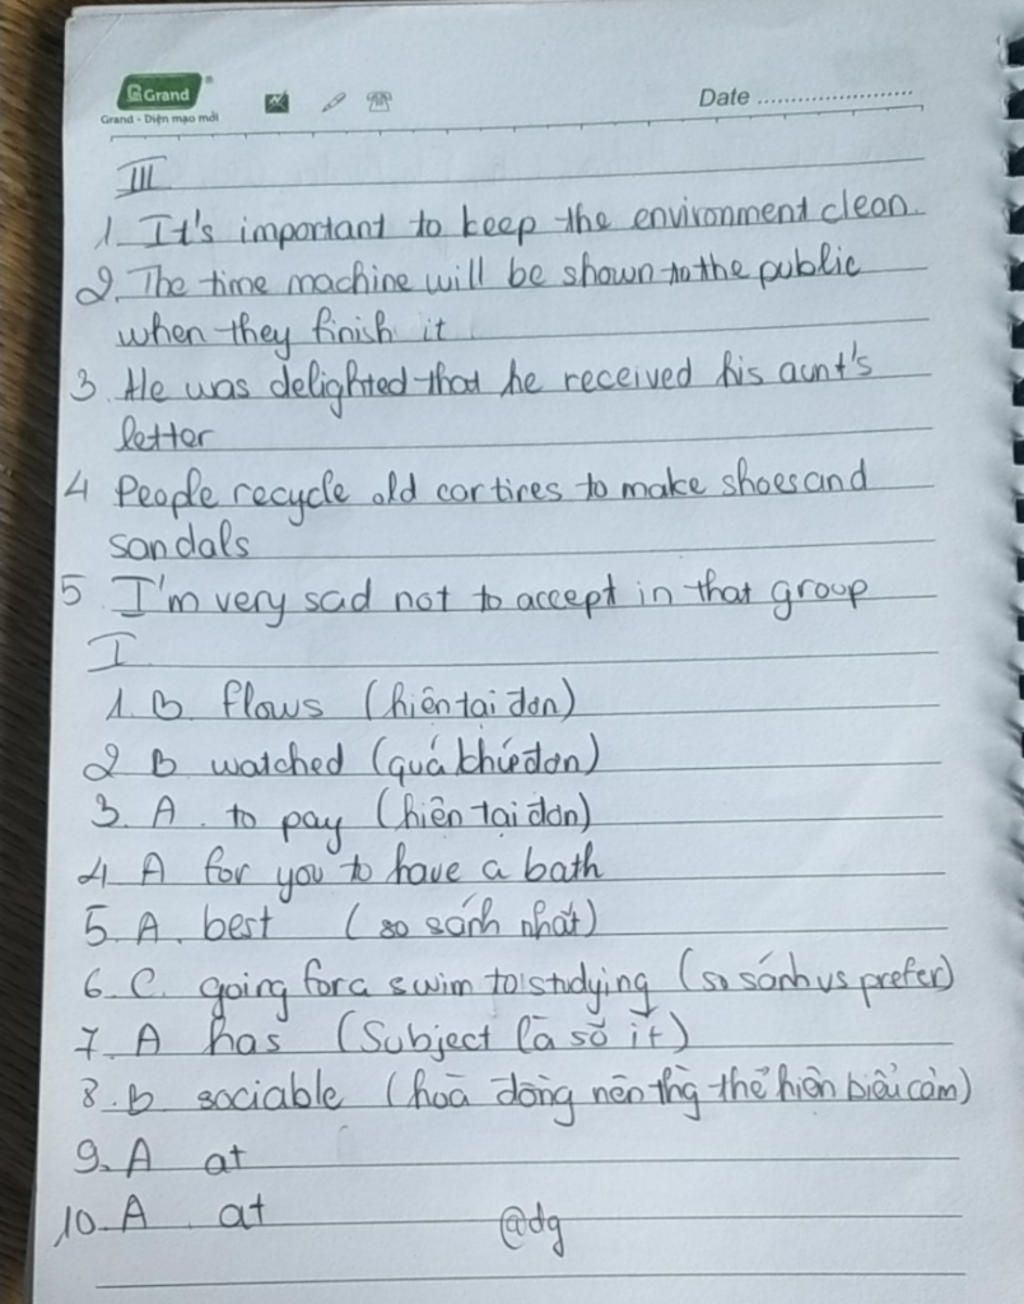 Grand
Grand - Diện mạo mới
Date
III
1. It's important to keep the environment clean.
2. The time machine will be shown to the public
when they finish it
3. He was delighted that he received his aunt's
letter
4 People recycle old car tires to make shoes and
sandals
5. I'm very sad not to accept in that group
I
1. B. flows (hiện tại đơn)
2 B watched (quá khứ đơn)
3. A. to pay (hiện tại đơn)
4 A for you to have a bath
5. A. best (so sánh nhất)
6. C. going for a swim to studying (so sánh vs prefer)
7. A has (Subject là số ít)
8. b sociable (hoà đồng nên thg thể hiện biểu cảm)
9. A at
10. A at @dg